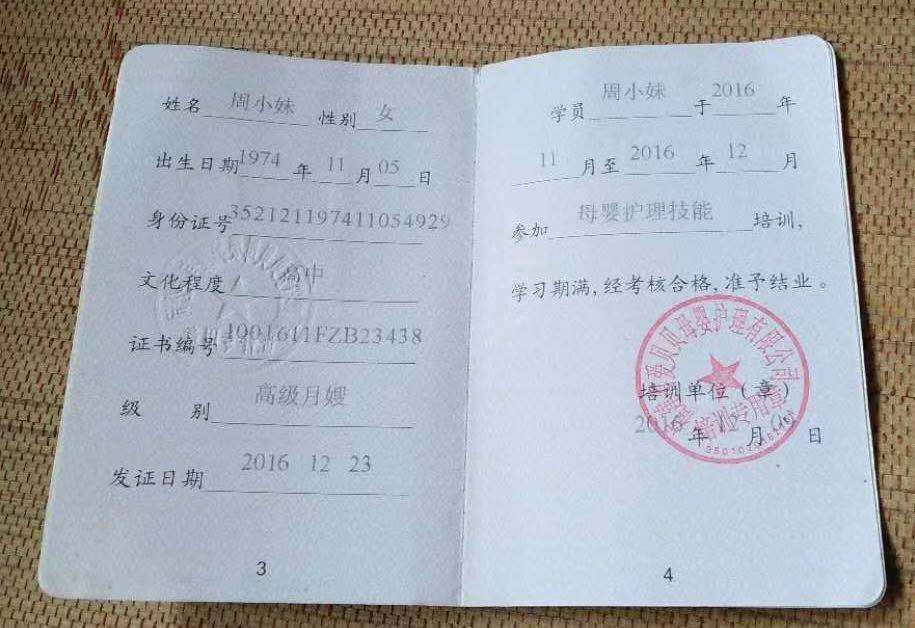 姓名 周小妹 性别 女
出生日期 1974 年 11 月 05 日
身份证号 352121197411054929
文化程度 高中
证书编号 1001611FZB23438
级 别 高级月嫂
发证日期 2016 12 23
3
学员 周小妹 于 2016 年
11 月至 2016 年 12 月
参加 母婴护理技能 培训,
学习期满,经考核合格,准予结业。
爱贝贝母婴护理有限公司
培训单位(章)
培训专用章
2016 年 12 月 日
4